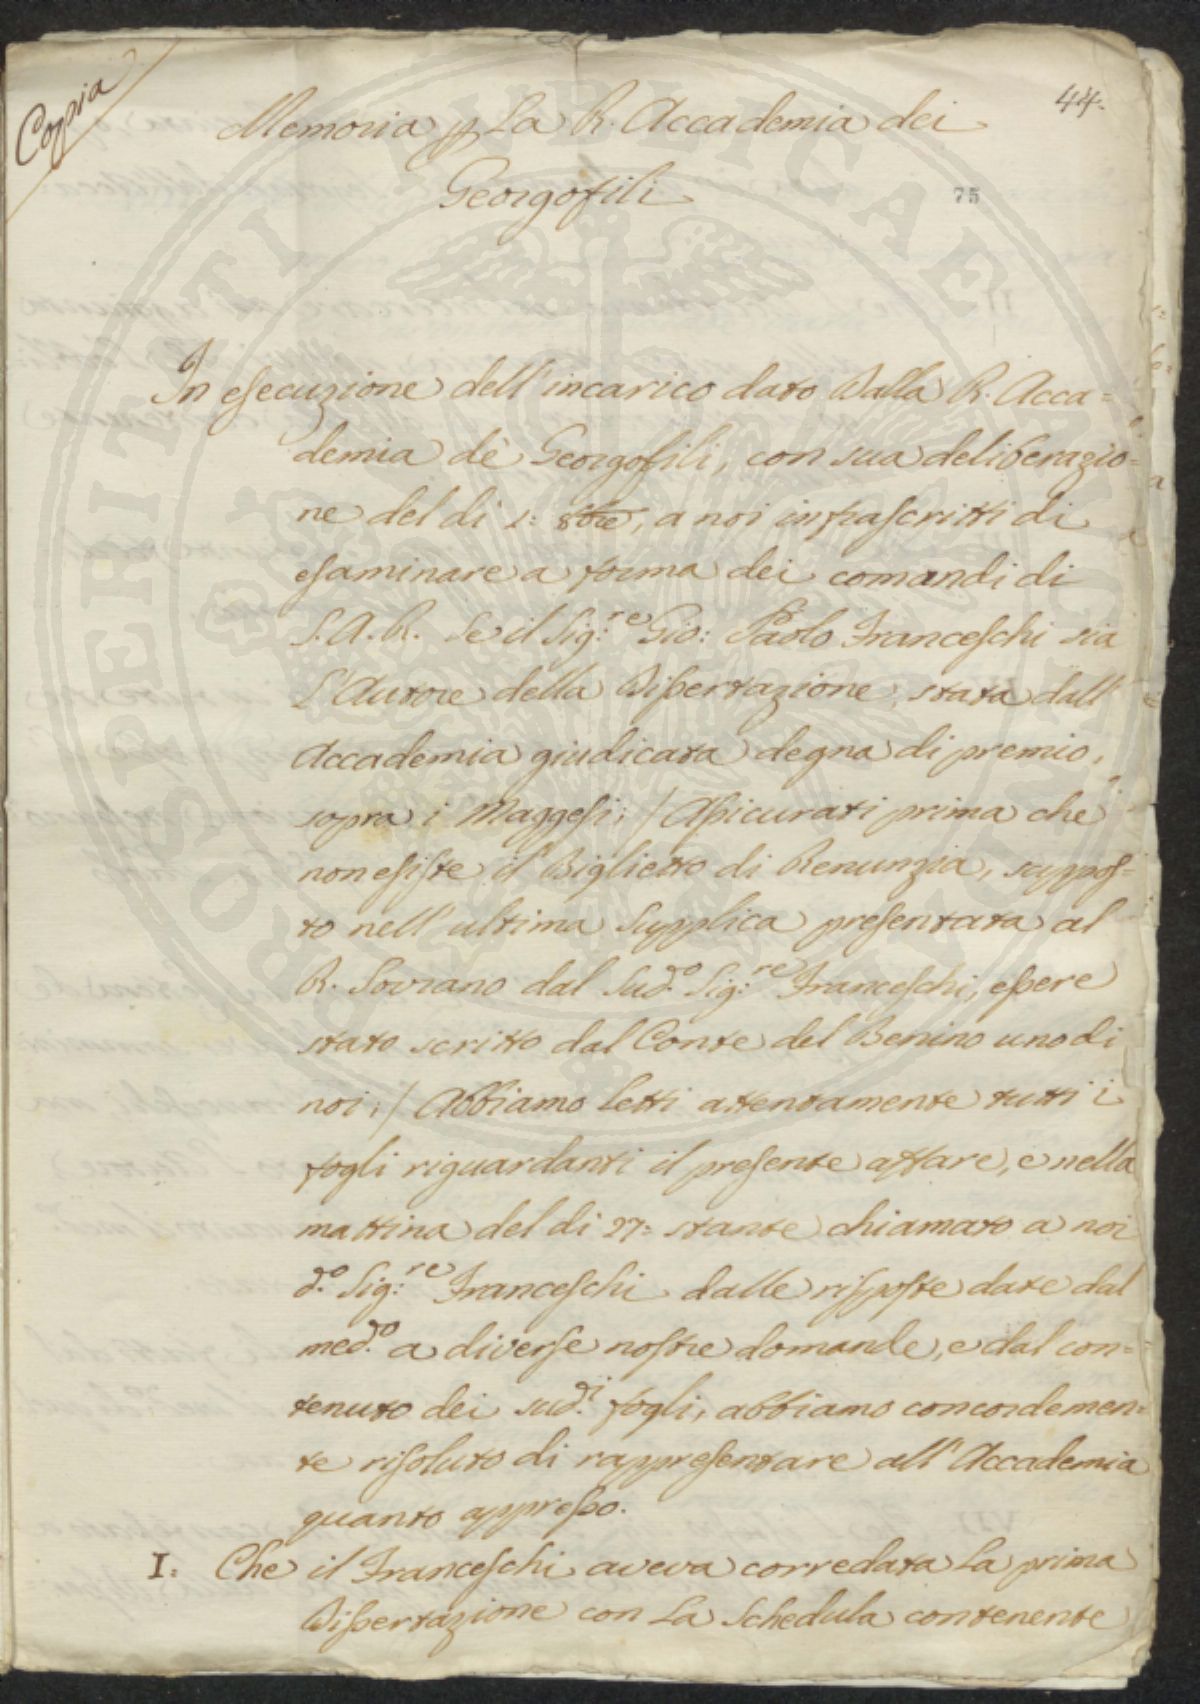 Copia
44.
Memoria p La R. Accademia dei
Georgofili
75
In esecuzione dell'incarico dato Dalla R. Acca=
demia dè Georgofili, con sua deliberazio=
ne del di 1: 8bre, a noi infrascritti di
esaminare a forma dei comandi di
S. A. R. Se il Sig:re Gio: Paolo Franceschi sia
L'Autore della Dissertazione, stata dall'
Accademia giudicata degna di premio,
sopra i Maggesi; / Assicurati prima che
non esiste il Biglietto di Renunzia, suppos=
to nell'ultima Supplica presentata al
R. Sovrano dal Sud.o Sig:re Franceschi, essere
stato scritto dal Conte del Benino uno di
noi; / Abbiamo Letti attentamente tutti i
fogli riguardanti il presente affare, e nella
mattina del di 27: stante chiamato a noi
d.o Sig:re Franceschi dalle risposte date dal
med.o a diverse nostre domande, e dal con=
tenuto dei sud.i fogli, abbiamo concordemen=
te risoluto di rappresentare all'Accademia
quanto appresso.
I: Che il Franceschi aveva corredata La prima
Dissertazione con La Schedula contenente
PROSPERITATI PVBLICAE AVGENDAE